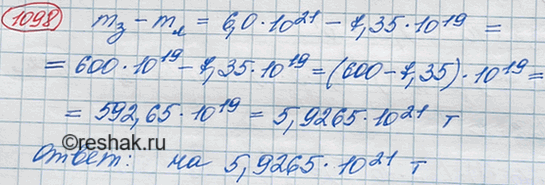 1098 mз - mл = 6,0·10²¹ - 7,35·10¹⁹ =
= 600·10¹⁹ - 7,35·10¹⁹ = (600 - 7,35)·10¹⁹ =
= 592,65·10¹⁹ = 5,9265·10²¹ т
©reshak.ru
Ответ: на 5,9265·10²¹ т